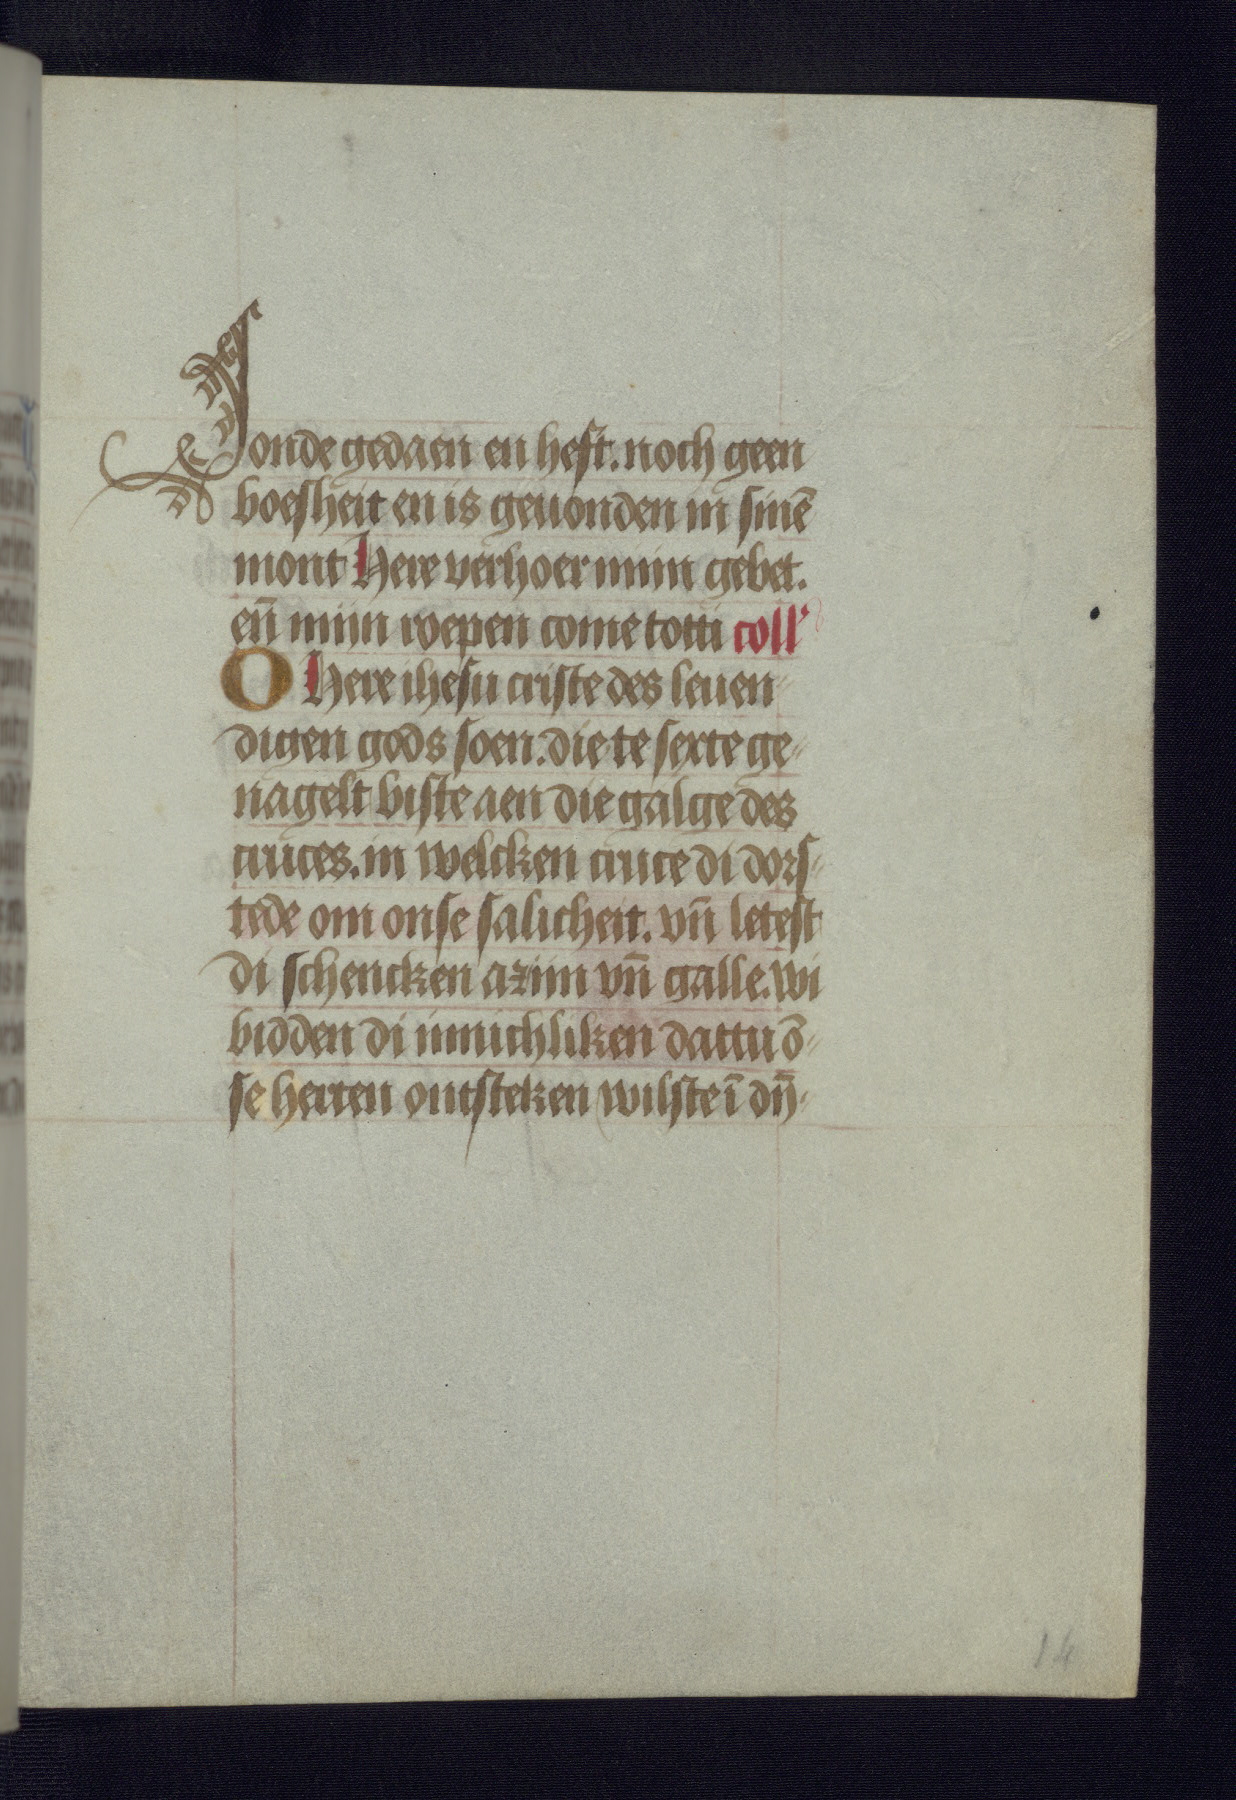 Sonde gedaen en heft. noch geen
boesheit en is geuonden in sinē
mont Here verhoer miin gebet.
eñ miin roepen come totti coll'
O Here ihesu criste des leuen-
digen gods soen. die te sexte ge-
nagelt biste aen die galge des
cruces. in welcken cruce di dors-
tede om onse salicheit. vñ letest
di schencken aziin vñ galle. wi
bidden di innichliken dattu ō-
se herten ontsteken wilste ī dṉ̄-
14